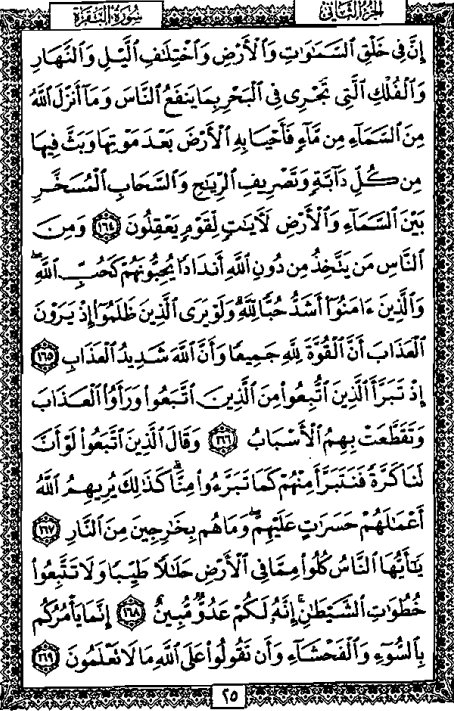 سُورَةُ البَقَرَةِ الجُزءُ الثَّانِي
إِنَّ فِي خَلْقِ ٱلسَّمَٰوَٰتِ وَٱلْأَرْضِ وَٱخْتِلَٰفِ ٱلَّيْلِ وَٱلنَّهَارِ
وَٱلْفُلْكِ ٱلَّتِي تَجْرِي فِي ٱلْبَحْرِ بِمَا يَنفَعُ ٱلنَّاسَ وَمَآ أَنزَلَ ٱللَّهُ
مِنَ ٱلسَّمَآءِ مِن مَّآءٍ فَأَحْيَا بِهِ ٱلْأَرْضَ بَعْدَ مَوْتِهَا وَبَثَّ فِيهَا
مِن كُلِّ دَآبَّةٍ وَتَصْرِيفِ ٱلرِّيَٰحِ وَٱلسَّحَابِ ٱلْمُسَخَّرِ
بَيْنَ ٱلسَّمَآءِ وَٱلْأَرْضِ لَأٓيَٰتٍ لِّقَوْمٍ يَعْقِلُونَ ١٦٤ وَمِنَ
ٱلنَّاسِ مَن يَتَّخِذُ مِن دُونِ ٱللَّهِ أَندَادًا يُحِبُّونَهُمْ كَحُبِّ ٱللَّهِۖ
وَٱلَّذِينَ ءَامَنُوٓا۟ أَشَدُّ حُبًّا لِّلَّهِۗ وَلَوْ يَرَى ٱلَّذِينَ ظَلَمُوٓا۟ إِذْ يَرَوْنَ
ٱلْعَذَابَ أَنَّ ٱلْقُوَّةَ لِلَّهِ جَمِيعًا وَأَنَّ ٱللَّهَ شَدِيدُ ٱلْعَذَابِ ١٦٥
إِذْ تَبَرَّأَ ٱلَّذِينَ ٱتُّبِعُوا۟ مِنَ ٱلَّذِينَ ٱتَّبَعُوا۟ وَرَأَوُا۟ ٱلْعَذَابَ
وَتَقَطَّعَتْ بِهِمُ ٱلْأَسْبَابُ ١٦٦ وَقَالَ ٱلَّذِينَ ٱتَّبَعُوا۟ لَوْ أَنَّ
لَنَا كَرَّةً فَنَتَبَرَّأَ مِنْهُمْ كَمَا تَبَرَّءُوا۟ مِنَّاۗ كَذَٰلِكَ يُرِيهِمُ ٱللَّهُ
أَعْمَٰلَهُمْ حَسَرَٰتٍ عَلَيْهِمْۖ وَمَا هُم بِخَٰرِجِينَ مِنَ ٱلنَّارِ ١٦٧
يَٰٓأَيُّهَا ٱلنَّاسُ كُلُوا۟ مِمَّا فِي ٱلْأَرْضِ حَلَٰلًا طَيِّبًا وَلَا تَتَّبِعُوا۟
خُطُوَٰتِ ٱلشَّيْطَٰنِۚ إِنَّهُۥ لَكُمْ عَدُوٌّ مُّبِينٌ ١٦٨ إِنَّمَا يَأْمُرُكُم
بِٱلسُّوٓءِ وَٱلْفَحْشَآءِ وَأَن تَقُولُوا۟ عَلَى ٱللَّهِ مَا لَا تَعْلَمُونَ ١٦٩
٢٥